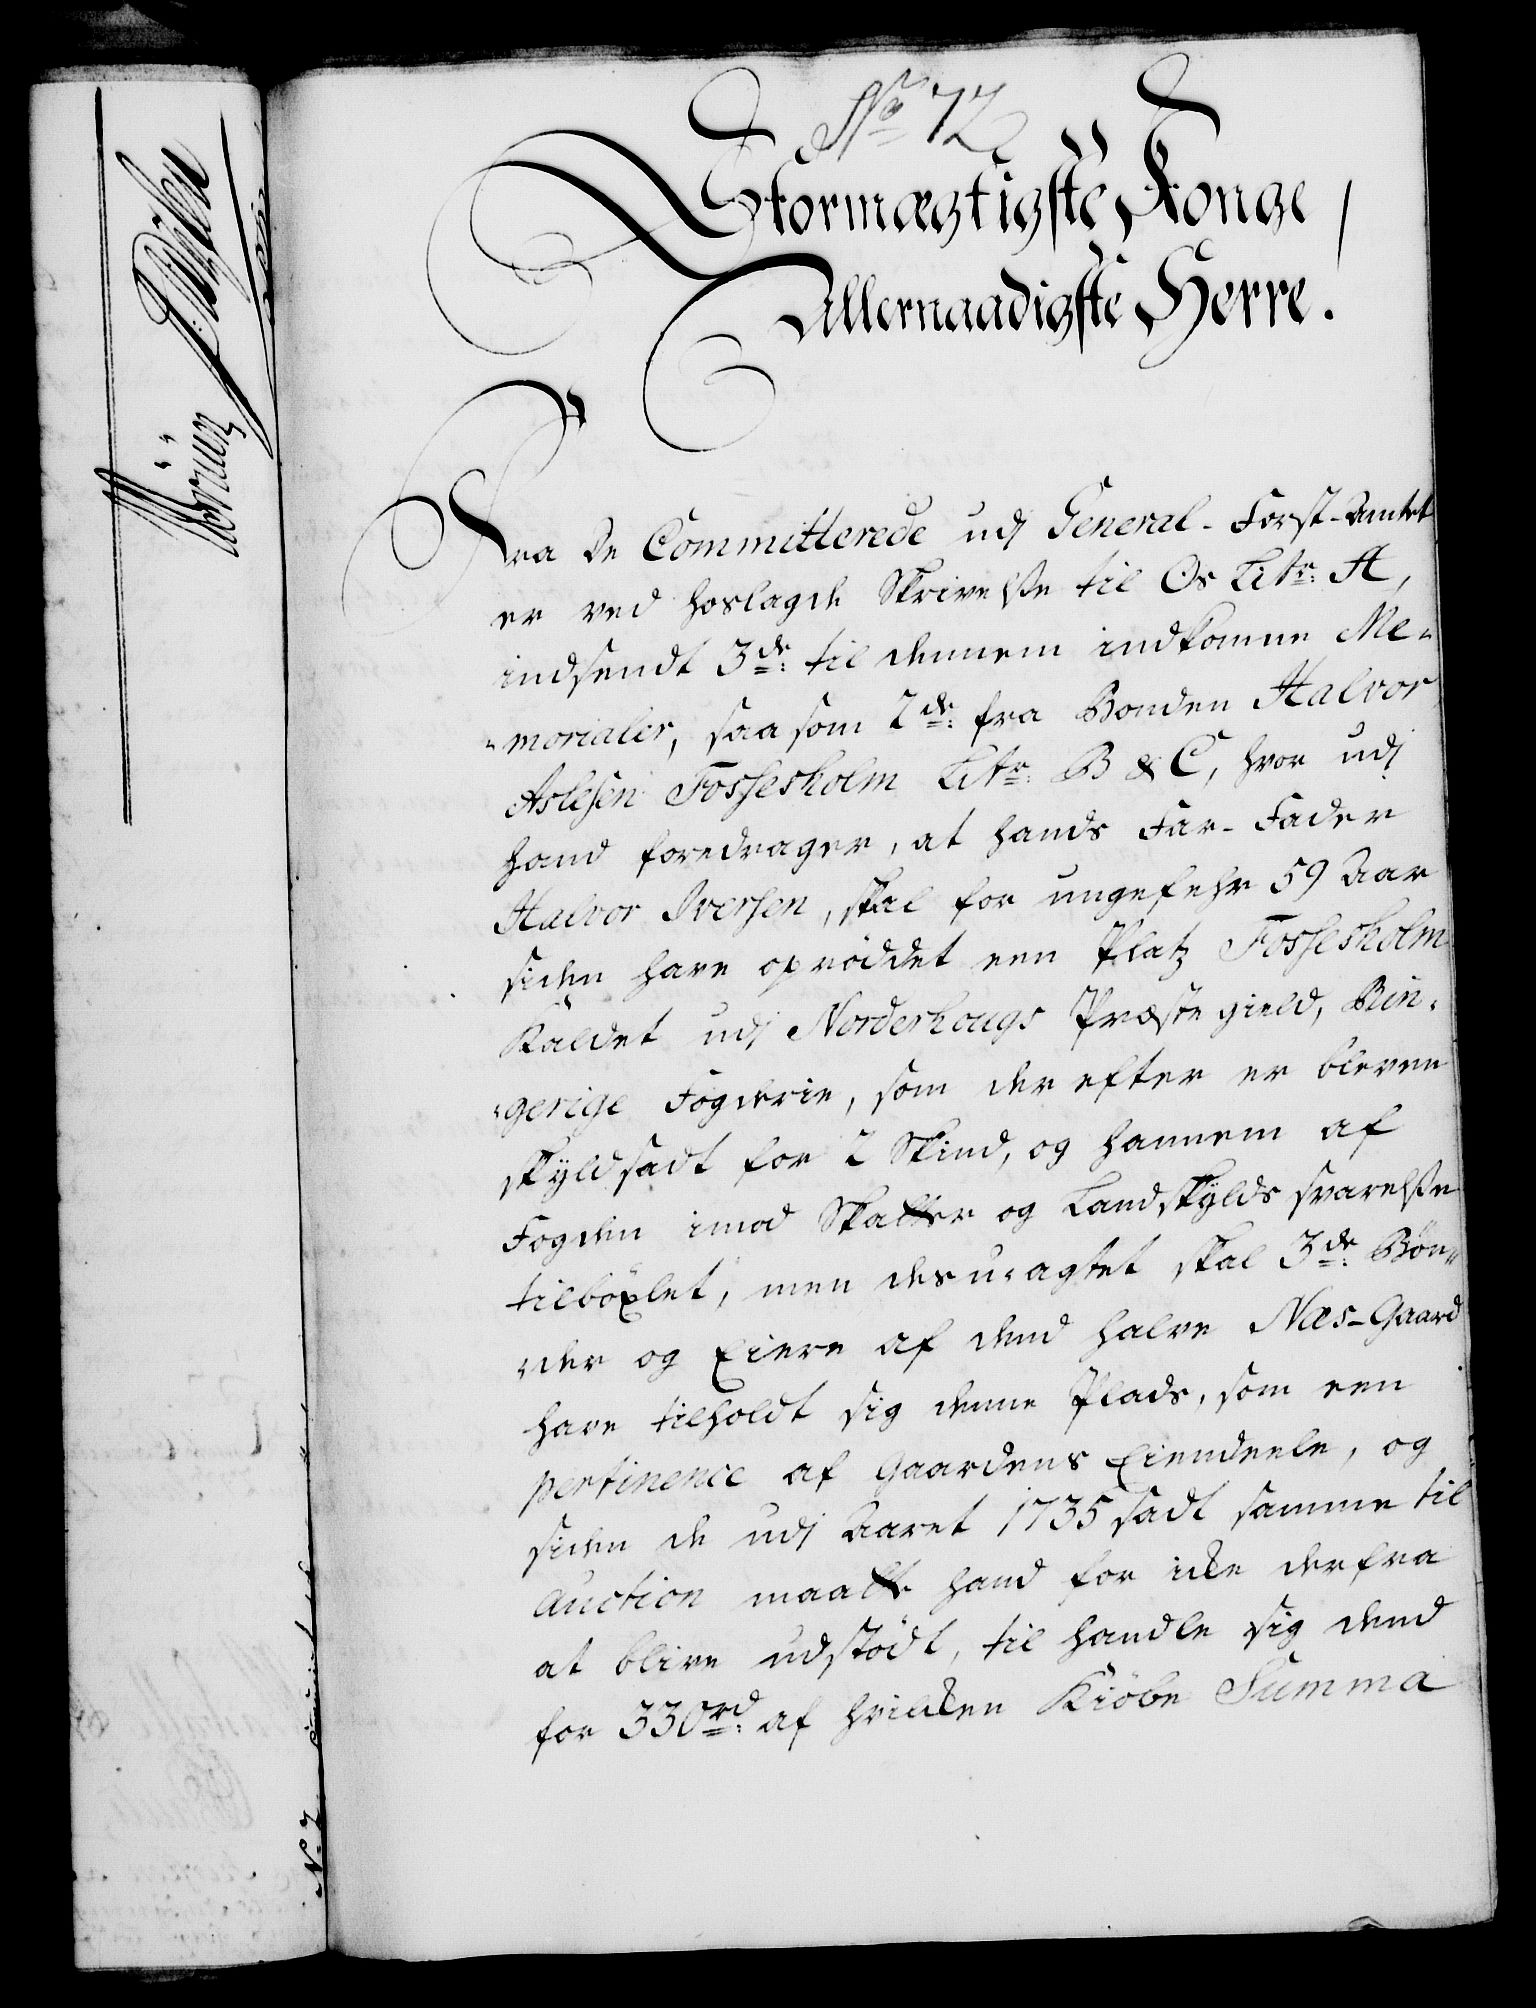 No 72
Stormægtigste Konge
Allernaadigste Herre!
Fra de Committerede udj General-Forst-Amtet
er ved hoslagde Skrivelse til Os Litr: A,
indsendt 3de: til dennem indkomne Me-
morialer, saasom 2de: fra Bonden Halvor
Aslesen Fossesholm Litr: B & C, hvor udj
hand foredrager, at hands Far-Fader
Halvor Iversen, skal for ungefehr 59 Aar
siden have oprøddet een Platz Fossesholm
kaldet udj Norderhougs Præstegield, Rin-
gerige Fogderie, som derefter er bleven
skyldsadt for 2 Skind, og hannem af
Fogden imod Skatter og Landskylds svarelse
tilbøxlet, men des u-agtet skal 3de: Bøn-
der og Eiere af dend halve Næs-Gaard
have tilholdt sig denne Plads, som een
pertinence af Gaardens Eiendeele, og
siden de udj Aaret 1735 sadt samme til
Auction maatte hand for icke derfra
at blive udstødt, til handle sig dend
for 330rd: af hvilcken Kiøbe Summa